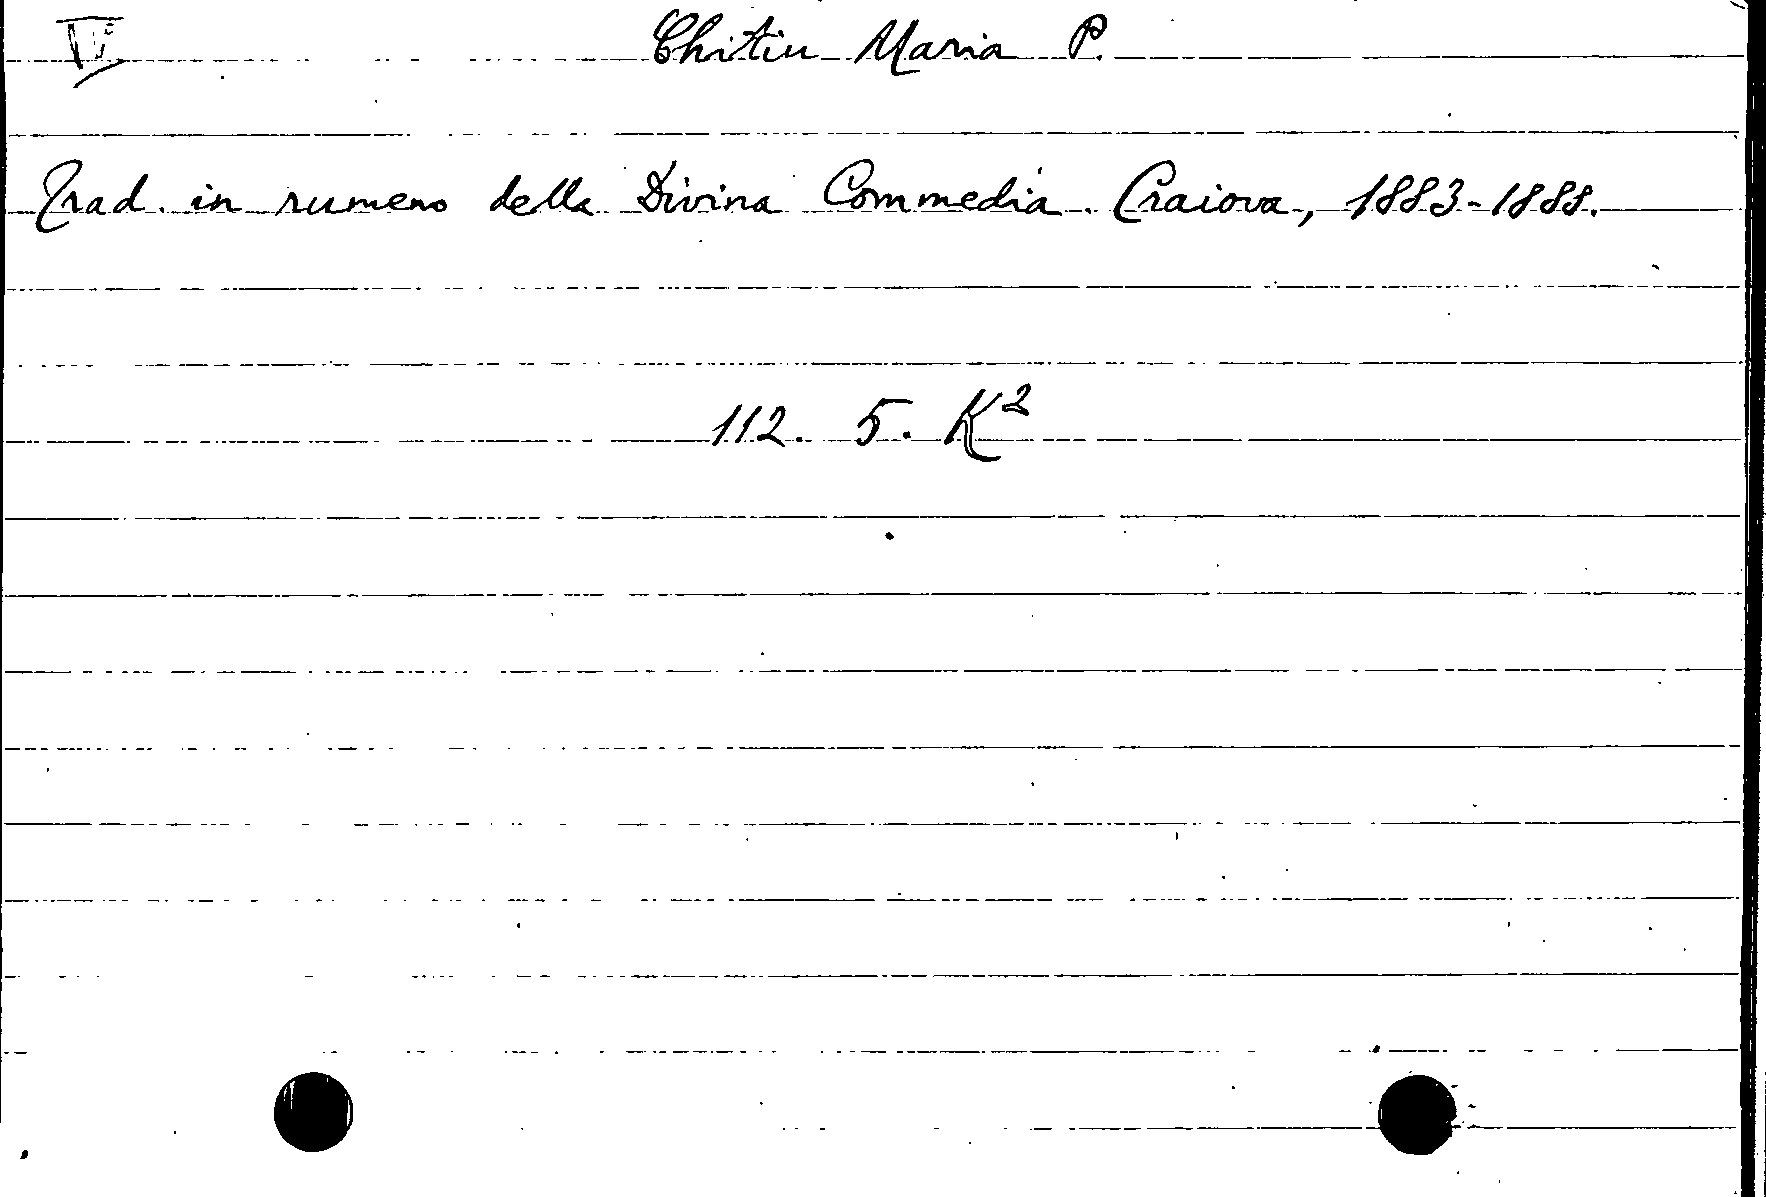 Chitiu Maria P.
Trad. in rumeno della Divina Commedia. Craiova, 1883-1888.
112. 5. K²